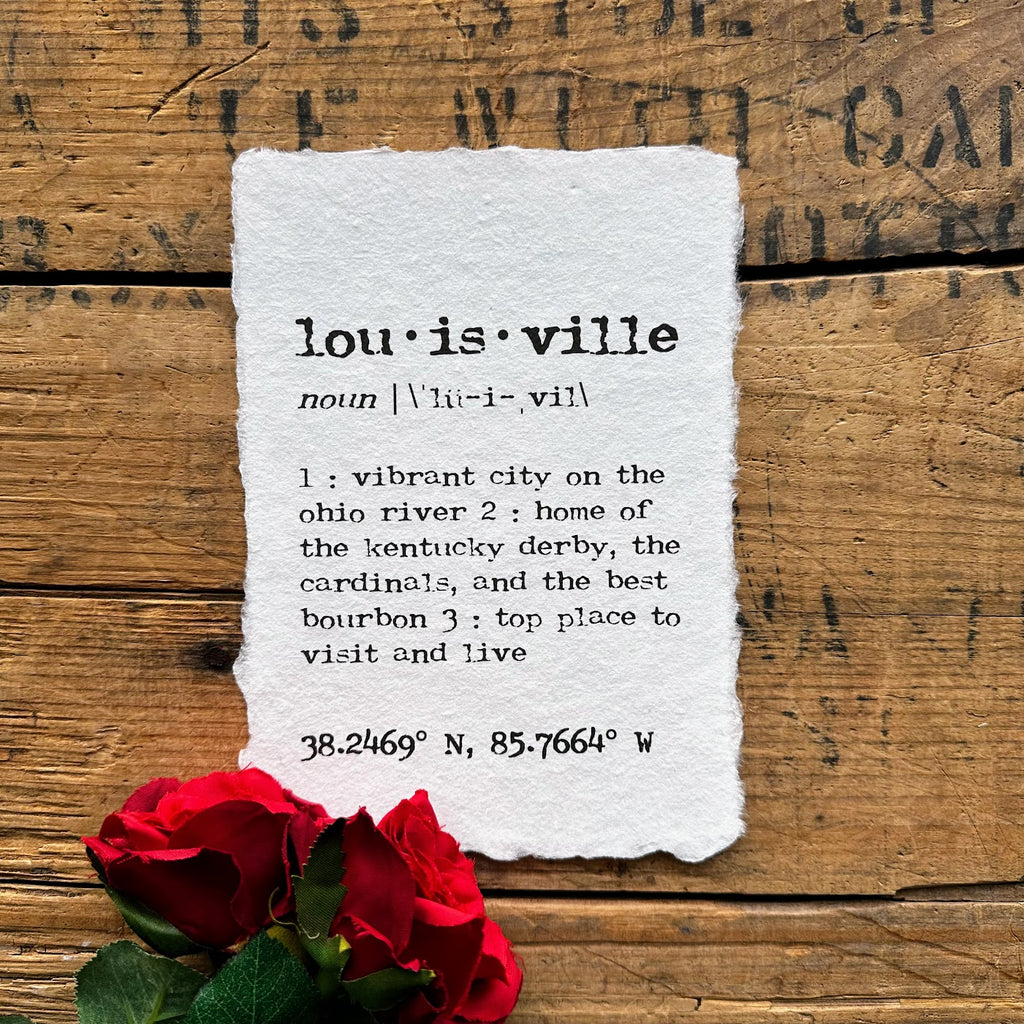 lou·is·ville
noun | \ˈlü-i-ˌvil\
1 : vibrant city on the
ohio river 2 : home of
the kentucky derby, the
cardinals, and the best
bourbon 3 : top place to
visit and live
38.2469° N, 85.7664° W